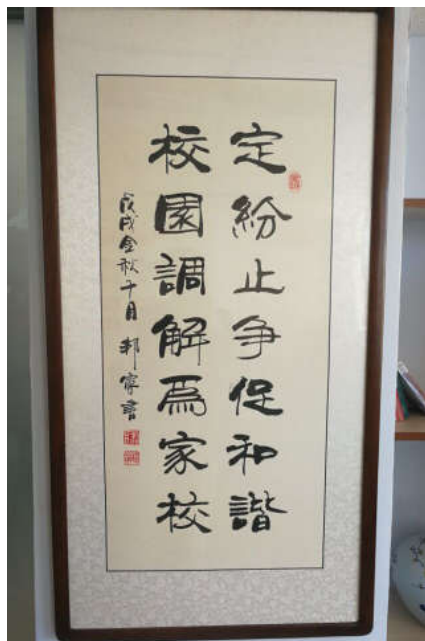 定紛止争促和諧
校園調解爲家校
戊戌金秋十月 邦寧書